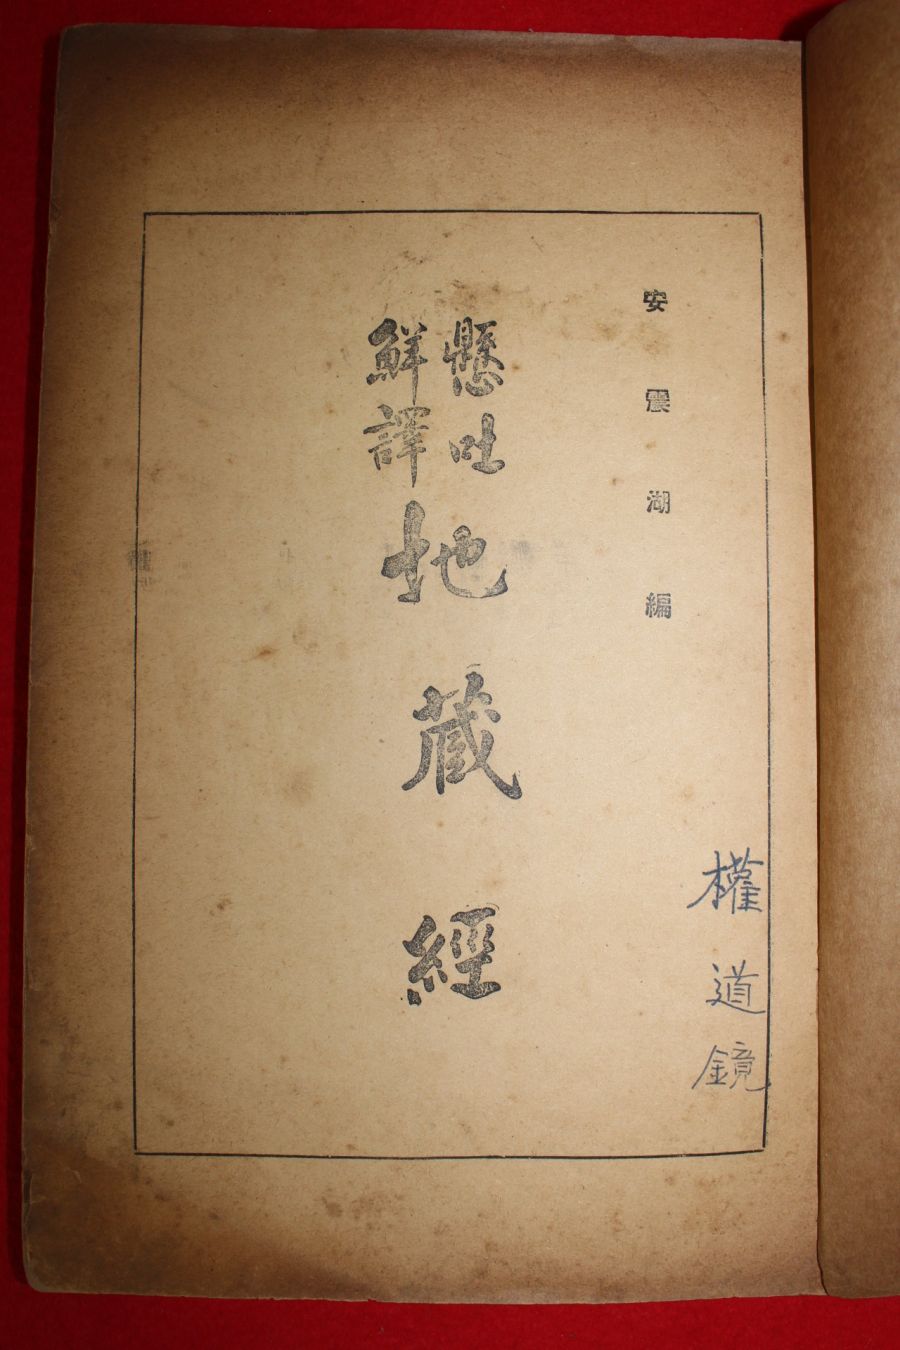 安震湖編
懸吐
鮮譯
地藏經
權道鏡